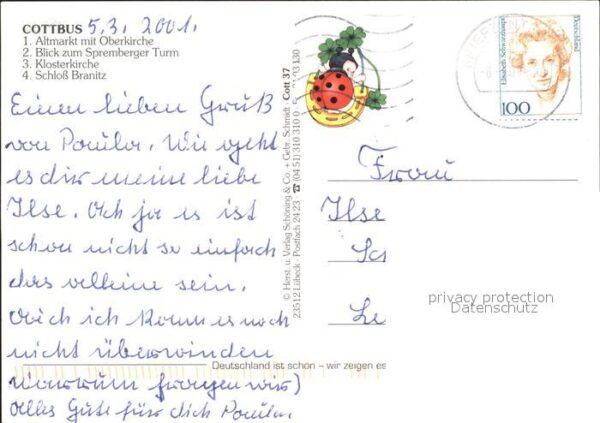 COTTBUS 5.3. 2001.
1. Altmarkt mit Oberkirche
2. Blick zum Spremberger Turm
3. Klosterkirche
4. Schloß Branitz
Einen lieben Gruß
von Paula. Wie geht
es dir meine liebe
Ilse. Ach ja es ist
schon nicht so einfach
das alleine sein.
Auch ich kann es noch
nicht überwinden
Warrum fragen wir)
Alles Gute für dich Paula.
© Herst. u. Verlag Schöning & Co. + Gebr. Schmidt · Cott 37
23512 Lübeck · Postfach 24 23 · ☎ (04 51) 310 310
Deutschland ist schön – wir zeigen es
Deutschland
100
Frau
Ilse
Sc
Le
privacy protection
Datenschutz